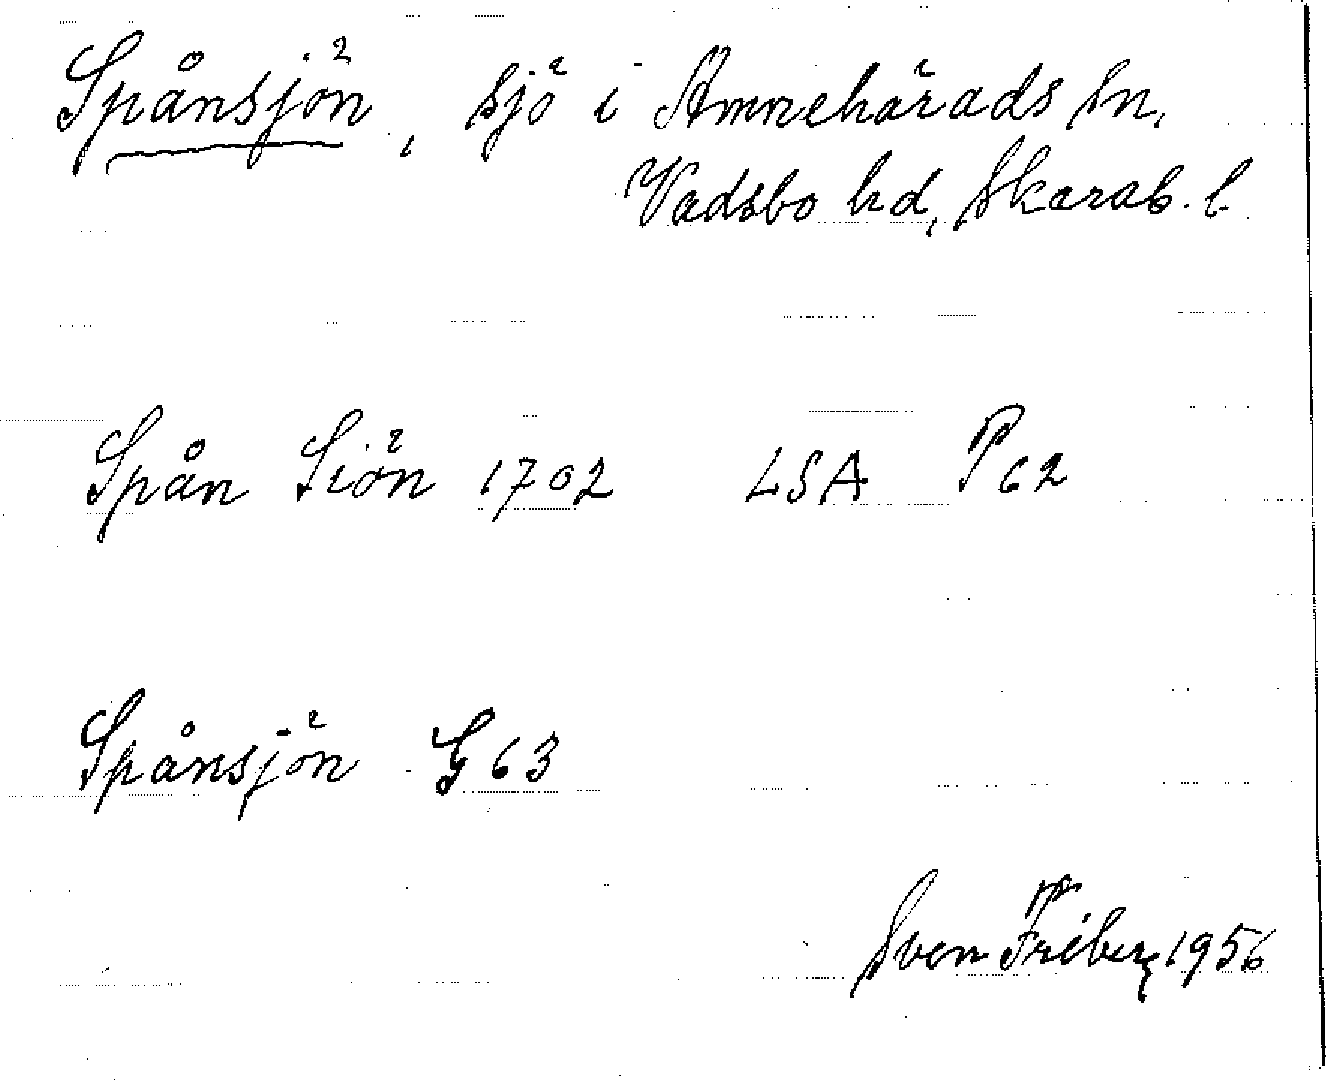 Spånsjön, sjö i Amnehärads sn,
Vadsbo hd, Skarab. l.
Spån Siön 1702 LSA P 62
Spånsjön G 63
Sven Friberg 1956